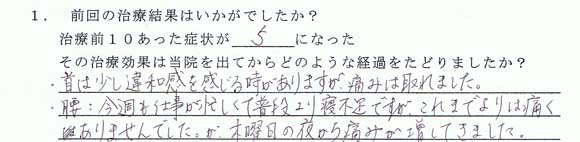 1. 前回の治療結果はいかがでしたか？
治療前10あった症状が 5 になった
その治療効果は当院を出てからどのような経過をたどりましたか？
・首は少し違和感を感じる時がありますが、痛みは取れました。
・腰：今週も仕事が忙しくて普段より寝不足ですが、これまでよりは痛く
ありませんでした。が、木曜日の夜から痛みが増してきました。